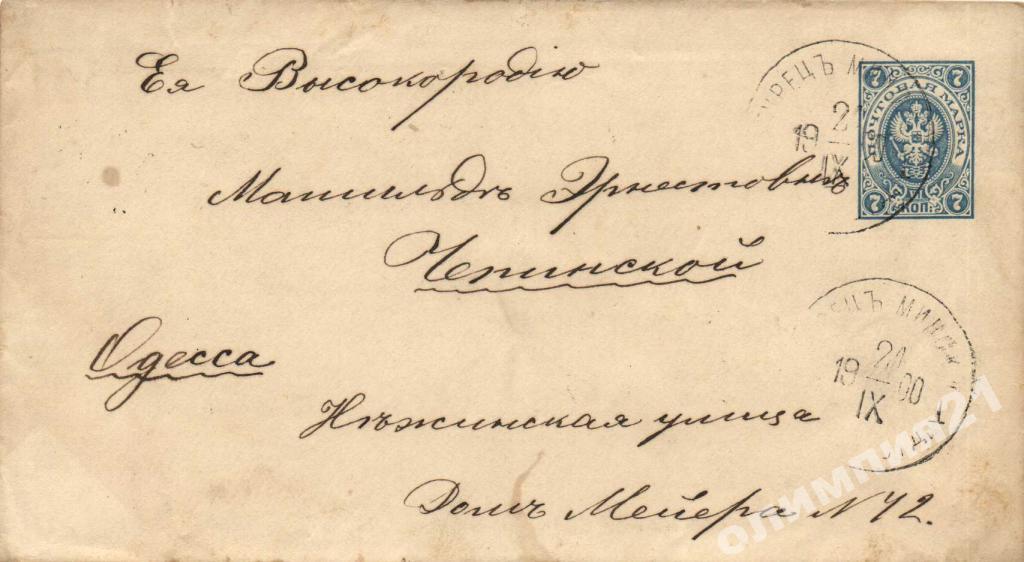 Ея Высокородію
Матильдѣ Эрнестовнѣ
Чепинской
Одесса
Нѣжинская улица
Домъ Мейера N 42.
7 7
ПОЧТОВАЯ МАРКА
7 КОП. 7
21
19
IX
МИНСК
21
19 00
IX
олимпия21